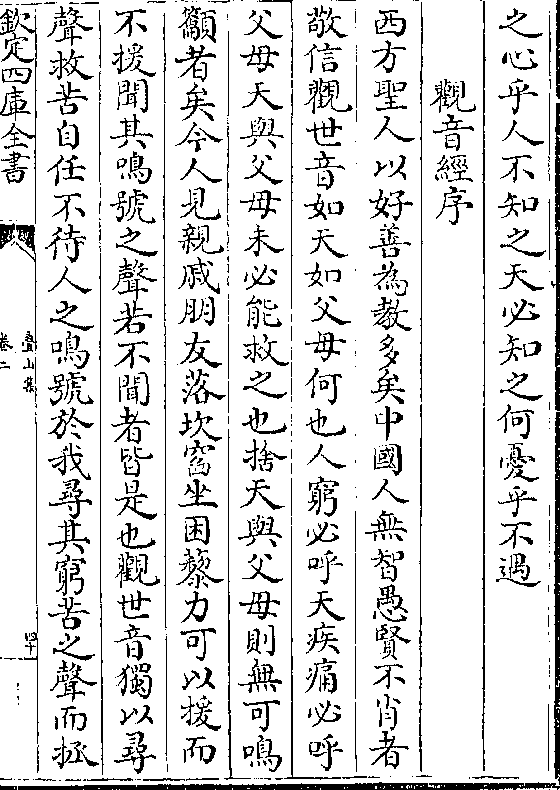 之心乎人不知之天必知之何憂乎不遇
觀音經序
西方聖人以好善為教多矣中國人無智愚賢不肖者
敬信觀世音如天如父母何也人窮必呼天疾痛必呼
父母天與父母未必能救之也捨天與父母則無可鳴
籲者矣今人見親戚朋友落坎窞坐困藜力可以援而
不援聞其鳴號之聲若不聞者皆是也觀世音獨以尋
聲救苦自任不待人之鳴號於我尋其窮苦之聲而拯
欽定四庫全書
疊山集
卷二
四十